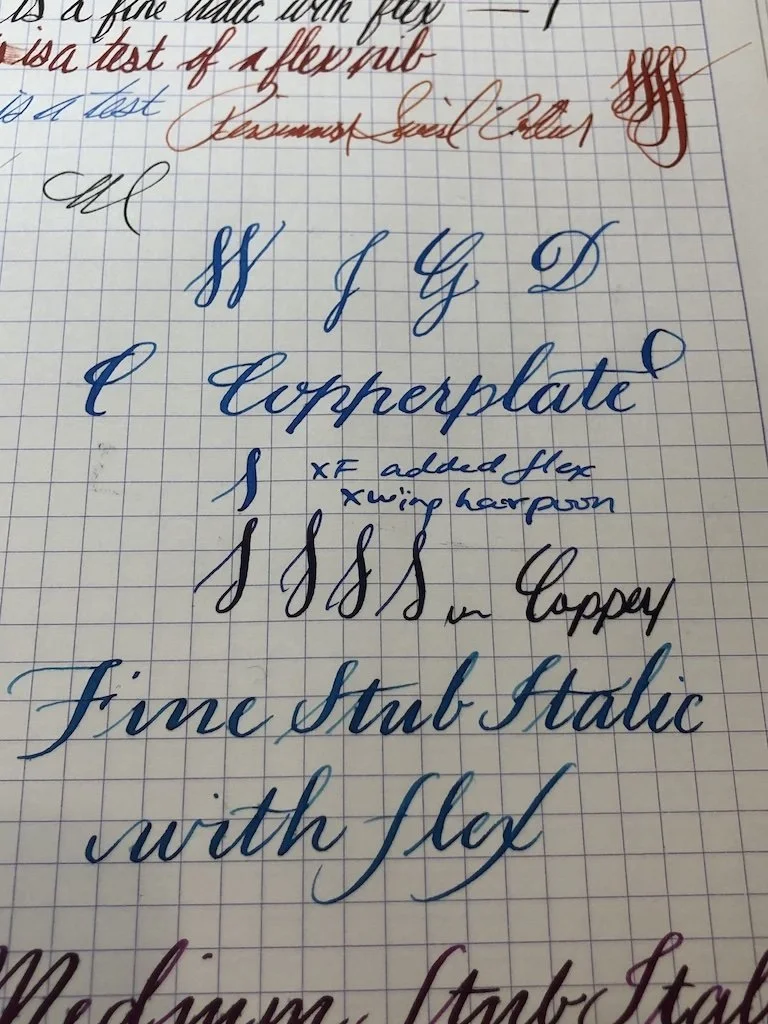 is a fine italic with flex
is a test of a flex nib
is a test Persimmon Swirl
W J G D
C Copperplate
S XF added flex
xwing harpoon
S S S S Copper
Fine Stub Italic
with flex
Medium Stub Ital